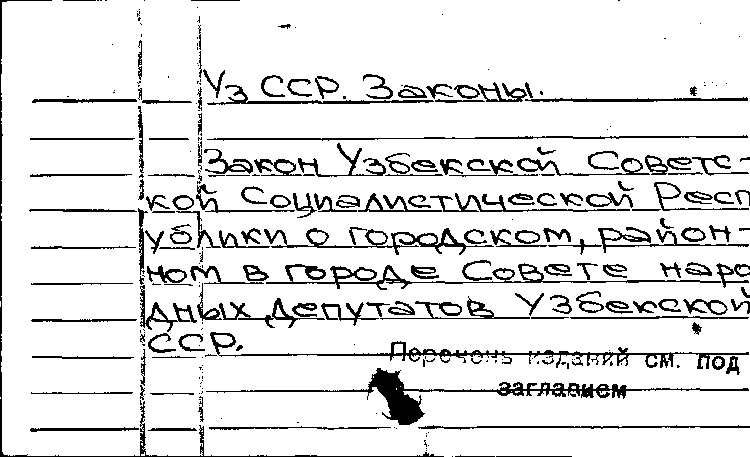 Уз ССР. Законы.
Закон Узбекской Советс-
кой Социалистической Респ
ублики о городском, район-
ном в городе Совете наро
дных депутатов Узбекской
ССР.
Перечень изданий см. под
заглавием